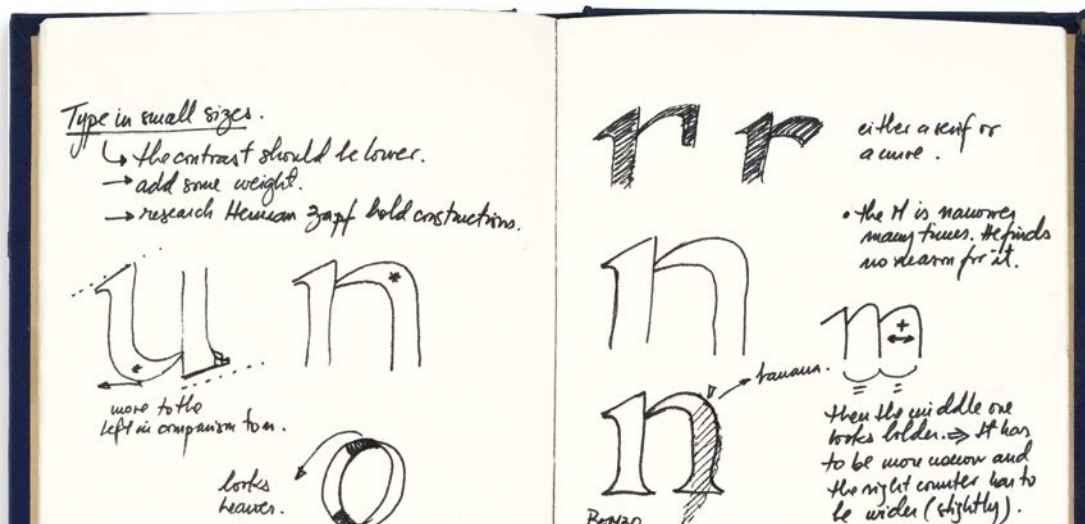 Type in small sizes.
↳ the contrast should be lower.
→ add some weight.
→ research Herman Zapf bold constructions.
u n
more to the
left in comparison to n.
looks
heavier.
o
r r
either a serif or
a curve.
• the M is narrower
many times. He finds
no reason for it.
n
m
+
= =
n → banana.
then the middle one
looks bolder. ⇒ It has
to be more narrow and
the right counter has to
be wider (slightly).